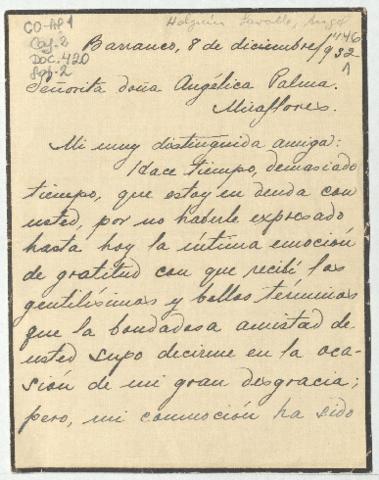 CO-AP1
Caj. 2
Doc. 420
Fol. 2
Holguín Lavalle, Angel
Barranco, 8 de diciembre/932
Señorita doña Angélica Palma.
Miraflores.
Mi muy distinguida amiga:
Hace tiempo, demasiado
tiempo, que estoy en deuda con
usted, por no haberle expresado
hasta hoy la íntima emoción
de gratitud con que recibí los
gentilísimos y bellos términos
que la bondadosa amistad de
usted supo decirme en la oca-
sión de mi gran desgracia;
pero, mi conmoción ha sido